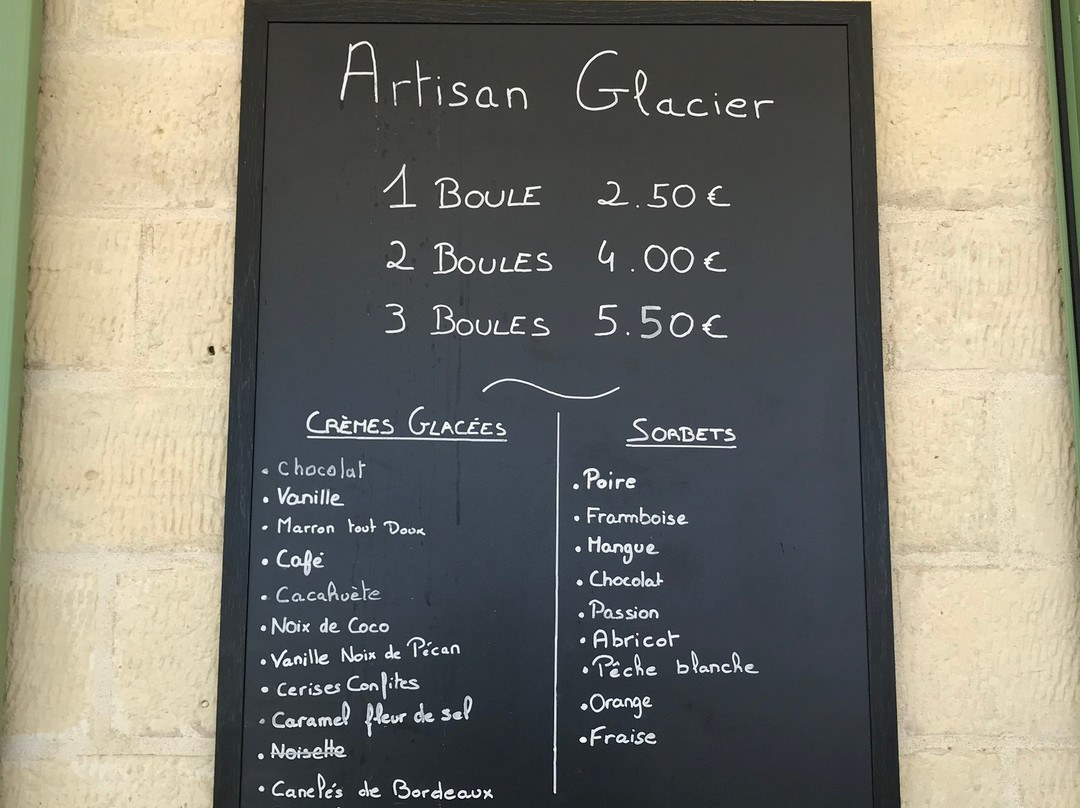 Artisan Glacier
1 BOULE 2.50 €
2 BOULES 4.00 €
3 BOULES 5.50 €
CRÈMES GLACÉES
• Chocolat
• Vanille
• Marron tout Doux
• Café
• Cacahuète
• Noix de Coco
• Vanille Noix de Pécan
• Cerises Confites
• Caramel fleur de sel
• Noisette
• Canelés de Bordeaux
SORBETS
• Poire
• Framboise
• Mangue
• Chocolat
• Passion
• Abricot
• Pêche blanche
• Orange
• Fraise